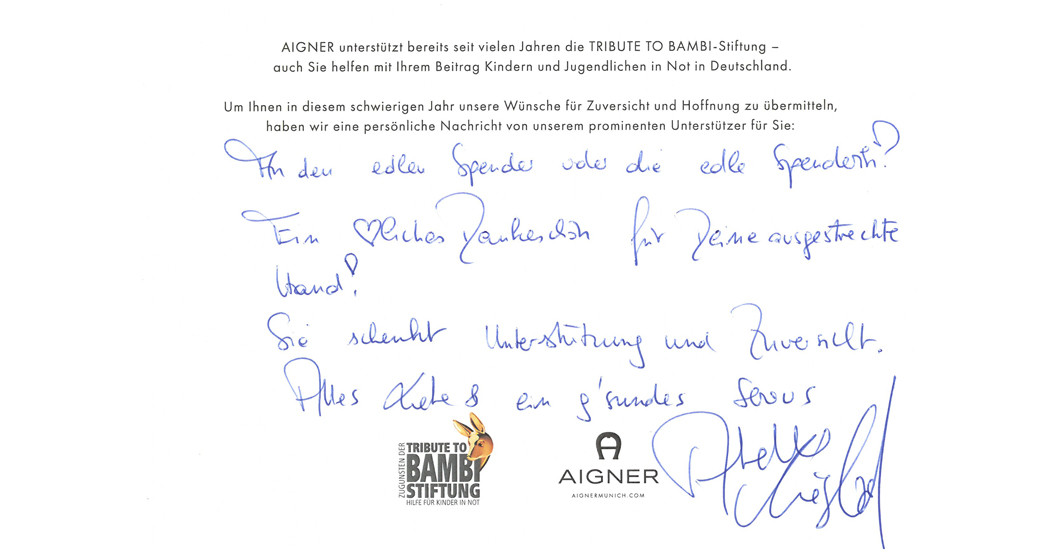 AIGNER unterstützt bereits seit vielen Jahren die TRIBUTE TO BAMBI-Stiftung –
auch Sie helfen mit Ihrem Beitrag Kindern und Jugendlichen in Not in Deutschland.
Um Ihnen in diesem schwierigen Jahr unsere Wünsche für Zuversicht und Hoffnung zu übermitteln,
haben wir eine persönliche Nachricht von unserem prominenten Unterstützer für Sie:
An den edlen Spender oder die edle Spenderin!
Ein ♡liches Dankeschön für Deine ausgestreckte
Hand!
Sie schenkt Unterstützung und Zuversicht.
Alles Liebe & ein g'sundes Servus
ZUGUNSTEN DER
TRIBUTE TO
BAMBI
STIFTUNG
HILFE FÜR KINDER IN NOT
AIGNER
AIGNERMUNICH.COM